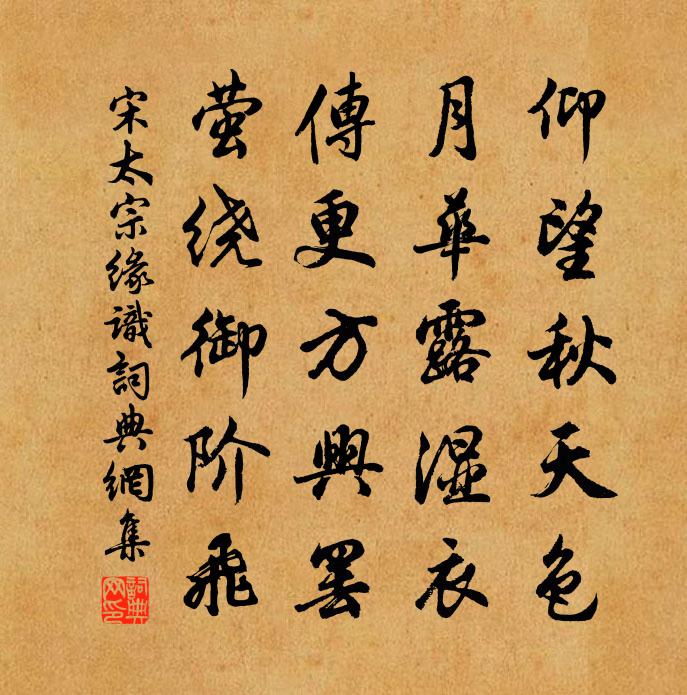 仰望秋天色
月華露湿衣
傳更方興罢
萤绕御阶飛
宋太宗缘識詞典網集
詞典網印